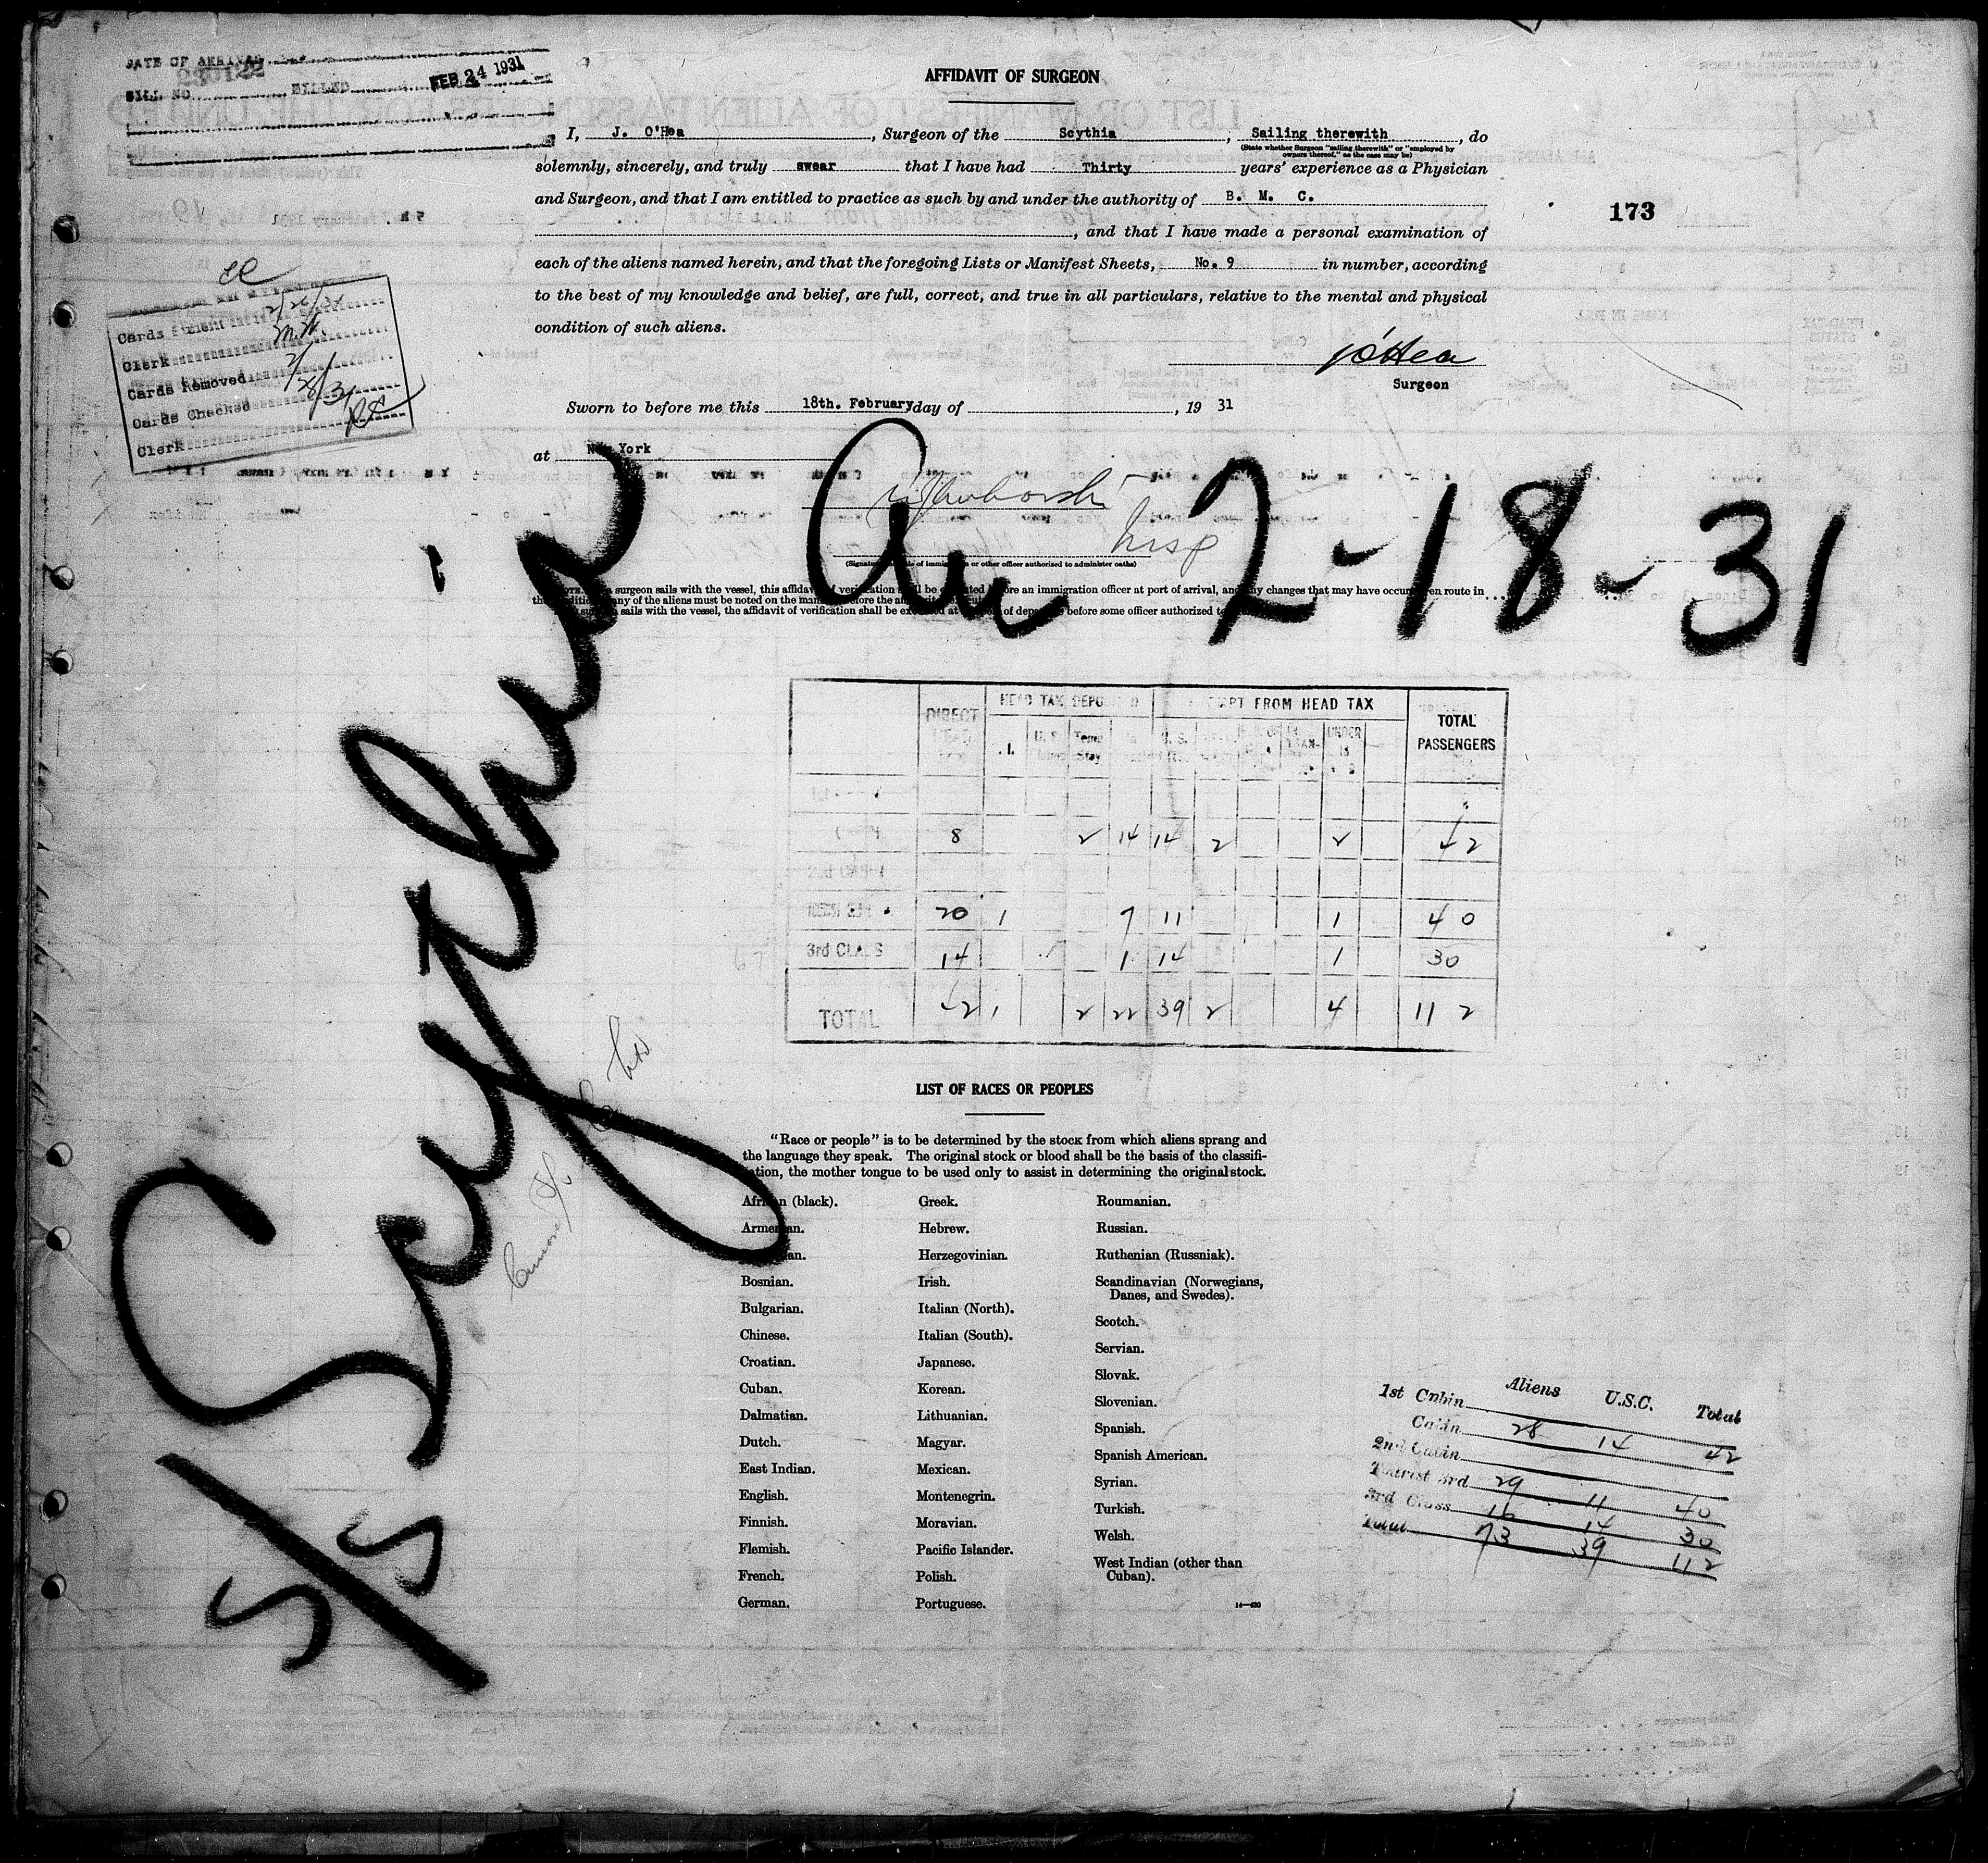 DATE OF ARRIVAL
230122
BILL NO. BILLED FEB 24 1931
AFFIDAVIT OF SURGEON
I, J. O'Hea, Surgeon of the Scythia, Sailing therewith, do
(State whether Surgeon "sailing therewith" or "employed by
owners thereof," as the case may be)
solemnly, sincerely, and truly swear that I have had Thirty years' experience as a Physician
and Surgeon, and that I am entitled to practice as such by and under the authority of B. M. C.
173
, and that I have made a personal examination of
each of the aliens named herein, and that the foregoing Lists or Manifest Sheets, No. 9 in number, according
to the best of my knowledge and belief, are full, correct, and true in all particulars, relative to the mental and physical
condition of such aliens.
J O'Hea
Surgeon
Sworn to before me this 18th. February day of , 19 31
at New York
Cards 2/26/31
Clerk M.H.
Cards Removed
Cards Checked 2/28/31
Clerk
Insp
(Signature of immigration or other officer authorized to administer oaths)
Arr 2-18-31
S/S Scythia
surgeon sails with the vessel, this affidavit of verification shall be before an immigration officer at port of arrival, and any changes that may have occurred en route in
the condition of any of the aliens must be noted on the manifest before the affidavit
sails with the vessel, the affidavit of verification shall be executed at of departure before some officer authorized to
DIRECT HEAD TAX DEPOSITED EXEMPT FROM HEAD TAX TOTAL PASSENGERS
U. S. Temp Stay U. S. TRAN- UNDER 16
CABIN 8 2 14 14 2 2 42
2nd CABIN
20 1 7 11 1 40
3rd CLASS 14 1 14 1 30
TOTAL 42 1 2 22 39 2 4 112
LIST OF RACES OR PEOPLES
"Race or people" is to be determined by the stock from which aliens sprang and
the language they speak. The original stock or blood shall be the basis of the classifi-
cation, the mother tongue to be used only to assist in determining the original stock.
African (black).
Armenian.
Bosnian.
Bulgarian.
Chinese.
Croatian.
Cuban.
Dalmatian.
Dutch.
East Indian.
English.
Finnish.
Flemish.
French.
German.
Greek.
Hebrew.
Herzegovinian.
Irish.
Italian (North).
Italian (South).
Japanese.
Korean.
Lithuanian.
Magyar.
Mexican.
Montenegrin.
Moravian.
Pacific Islander.
Polish.
Portuguese.
Roumanian.
Russian.
Ruthenian (Russniak).
Scandinavian (Norwegians,
Danes, and Swedes).
Scotch.
Servian.
Slovak.
Slovenian.
Spanish.
Spanish American.
Syrian.
Turkish.
Welsh.
West Indian (other than
Cuban).
14—430
Aliens U.S.C. Total
1st Cabin
Cabin 28 14 42
2nd Cabin
Tourist 3rd 29 11 40
3rd Class 16 14 30
Total 73 39 112